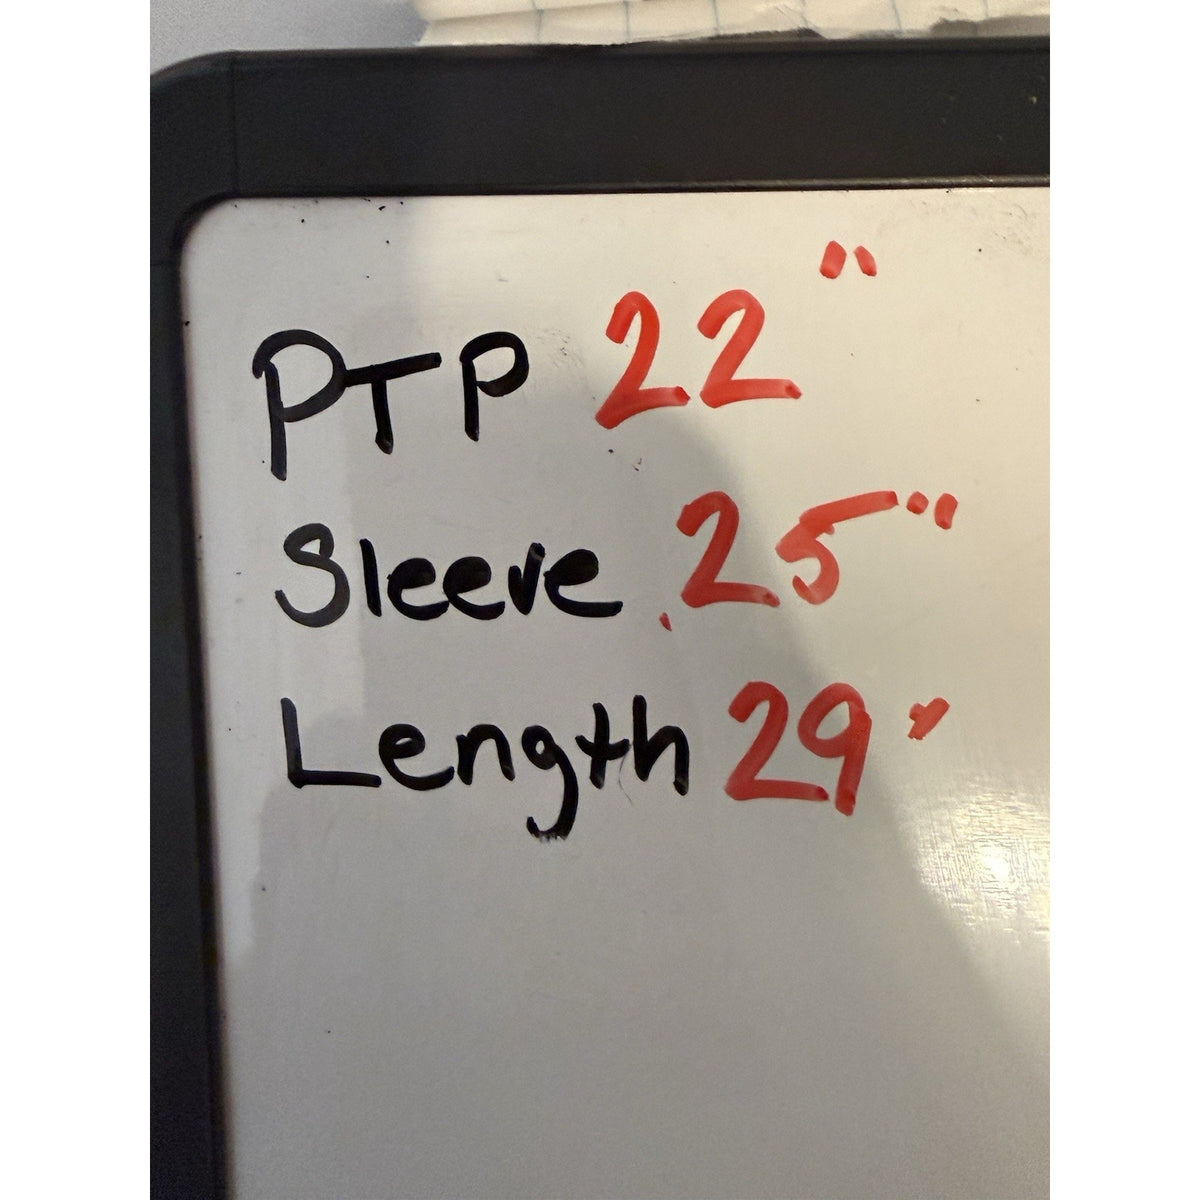 PTP 22"
Sleeve 25"
Length 29"